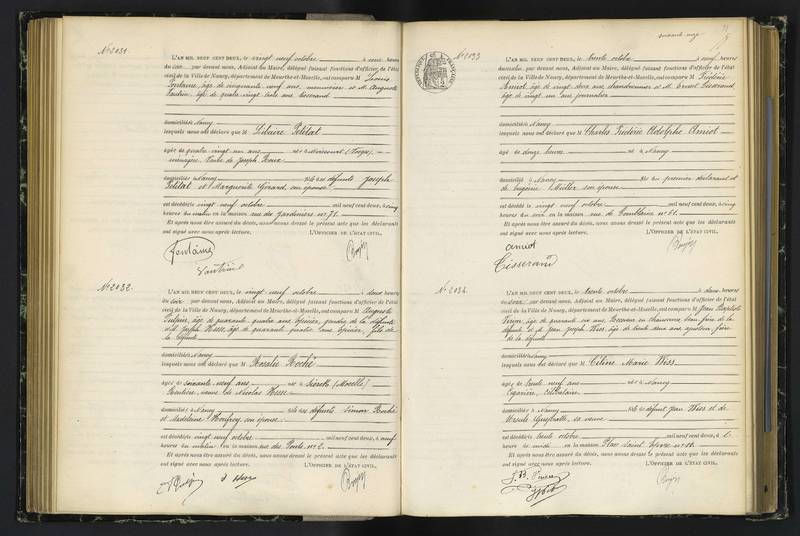 N° 2031.
L'AN MIL NEUF CENT DEUX, le vingt neuf octobre à onze heures
du soir par devant nous, Adjoint au Maire, délégué faisant fonctions d'officier de l'état
civil de la Ville de Nancy, département de Meurthe-et-Moselle, ont comparu M Louis
Fontaine, âgé de cinquante neuf ans, menuisier et M. Auguste
âgé de quatre vingt trois ans
domiciliés à Nancy
lesquels nous ont déclaré que M Libaire Petitat
âgée de quatre vingt un ans née à (Vosges),
ménagère, veuve de Joseph Roux
domiciliée à Nancy fille des défunts Joseph
Petitat et Marguerite Girard, son épouse
est décédée vingt neuf octobre mil neuf cent deux, à cinq
heures du matin en la maison rue des Jardiniers n° 71.
Et après nous être assuré du décès, nous avons dressé le présent acte que les déclarants
ont signé avec nous après lecture. L'OFFICIER DE L'ÉTAT CIVIL,
Fontaine
N° 2032.
L'AN MIL NEUF CENT DEUX, le vingt neuf octobre à deux heures
du soir par devant nous, Adjoint au Maire, délégué faisant fonctions d'officier de l'état
civil de la Ville de Nancy, département de Meurthe-et-Moselle, ont comparu M Auguste
âgé de quarante quatre ans, gendre de la défunte
et Joseph Hesse, âgé de quarante quatre ans, fils de
la défunte
domiciliés à Nancy
lesquels nous ont déclaré que M Rosalie Roché
âgée de soixante neuf ans née à Sierck (Moselle)
Rentière, veuve de Nicolas Hesse
domiciliée à Nancy fille des défunts Simon Roché
et Madeleine son épouse
est décédée vingt neuf octobre mil neuf cent deux, à neuf
heures du matin en la maison rue des Ponts n° 2.
Et après nous être assuré du décès, nous avons dressé le présent acte que les déclarants
ont signé avec nous après lecture. L'OFFICIER DE L'ÉTAT CIVIL,
N° 2033
L'AN MIL NEUF CENT DEUX, le trente octobre à neuf heures
du matin par devant nous, Adjoint au Maire, délégué faisant fonctions d'officier de l'état
civil de la Ville de Nancy, département de Meurthe-et-Moselle, ont comparu M Frédéric
Amiot, âgé de vingt deux ans, chaudronnier et M. Ernest Tisserand
âgé de vingt un ans journalier
domiciliés à Nancy
lesquels nous ont déclaré que M Charles Frédéric Adolphe Amiot
âgé de douze heures né à Nancy
domicilié à Nancy fils du premier déclarant et
de Eugénie Müller son épouse
est décédé vingt neuf octobre mil neuf cent deux, à cinq
heures du soir en la maison rue de Tomblaine n° 61.
Et après nous être assuré du décès, nous avons dressé le présent acte que les déclarants
ont signé avec nous après lecture. L'OFFICIER DE L'ÉTAT CIVIL,
amiot
Tisserand
N° 2034.
L'AN MIL NEUF CENT DEUX, le trente octobre à deux heures
du soir par devant nous, Adjoint au Maire, délégué faisant fonctions d'officier de l'état
civil de la Ville de Nancy, département de Meurthe-et-Moselle, ont comparu M Jean Baptiste
âgé de quarante six ans, en chaussures, beau frère de la
défunte et M. Jean Joseph Wiss, âgé de trente deux ans, ajusteur, frère
de la défunte
domiciliés à Nancy
lesquels nous ont déclaré que M Céline Marie Wiss
âgée de trente neuf ans née à Nancy
Cigarière, Célibataire
domiciliée à Nancy fille de défunt Jean Wiss et de
Ursule sa veuve
est décédée trente octobre mil neuf cent deux, à
heures de midi en la maison Place Saint Epvre n°
Et après nous être assuré du décès, nous avons dressé le présent acte que les déclarants
ont signé avec nous après lecture. L'OFFICIER DE L'ÉTAT CIVIL,